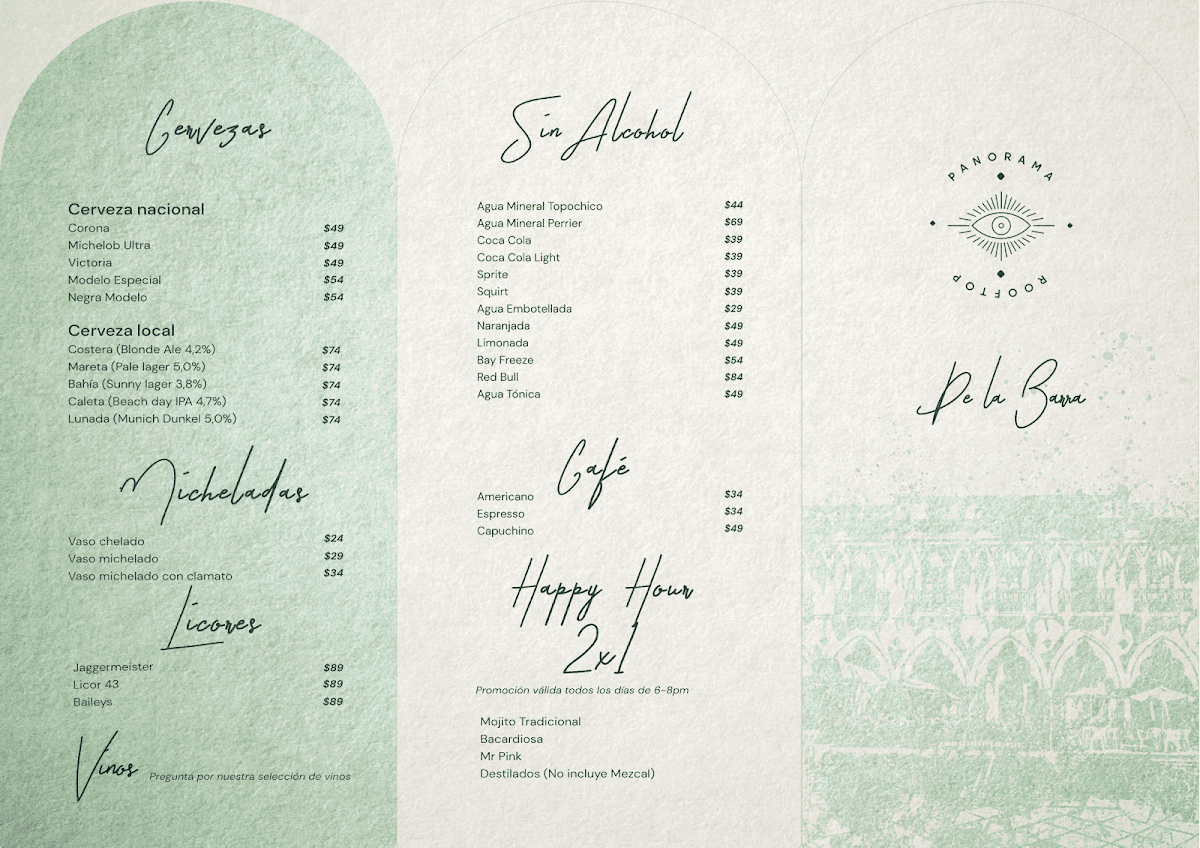 Cervezas
Cerveza nacional
Corona $49
Michelob Ultra $49
Victoria $49
Modelo Especial $54
Negra Modelo $54
Cerveza local
Costera (Blonde Ale 4,2%) $74
Mareta (Pale lager 5,0%) $74
Bahía (Sunny lager 3,8%) $74
Caleta (Beach day IPA 4,7%) $74
Lunada (Munich Dunkel 5,0%) $74
Micheladas
Vaso chelado $24
Vaso michelado $29
Vaso michelado con clamato $34
Licores
Jaggermeister $89
Licor 43 $89
Baileys $89
Vinos Pregunta por nuestra selección de vinos
Sin Alcohol
Agua Mineral Topochico $44
Agua Mineral Perrier $69
Coca Cola $39
Coca Cola Light $39
Sprite $39
Squirt $39
Agua Embotellada $29
Naranjada $49
Limonada $49
Bay Freeze $54
Red Bull $84
Agua Tónica $49
Café
Americano $34
Espresso $34
Capuchino $49
Happy Hour
2x1
Promoción válida todos los días de 6-8pm
Mojito Tradicional
Bacardiosa
Mr Pink
Destilados (No incluye Mezcal)
PANORAMA
ROOFTOP
De la Barra